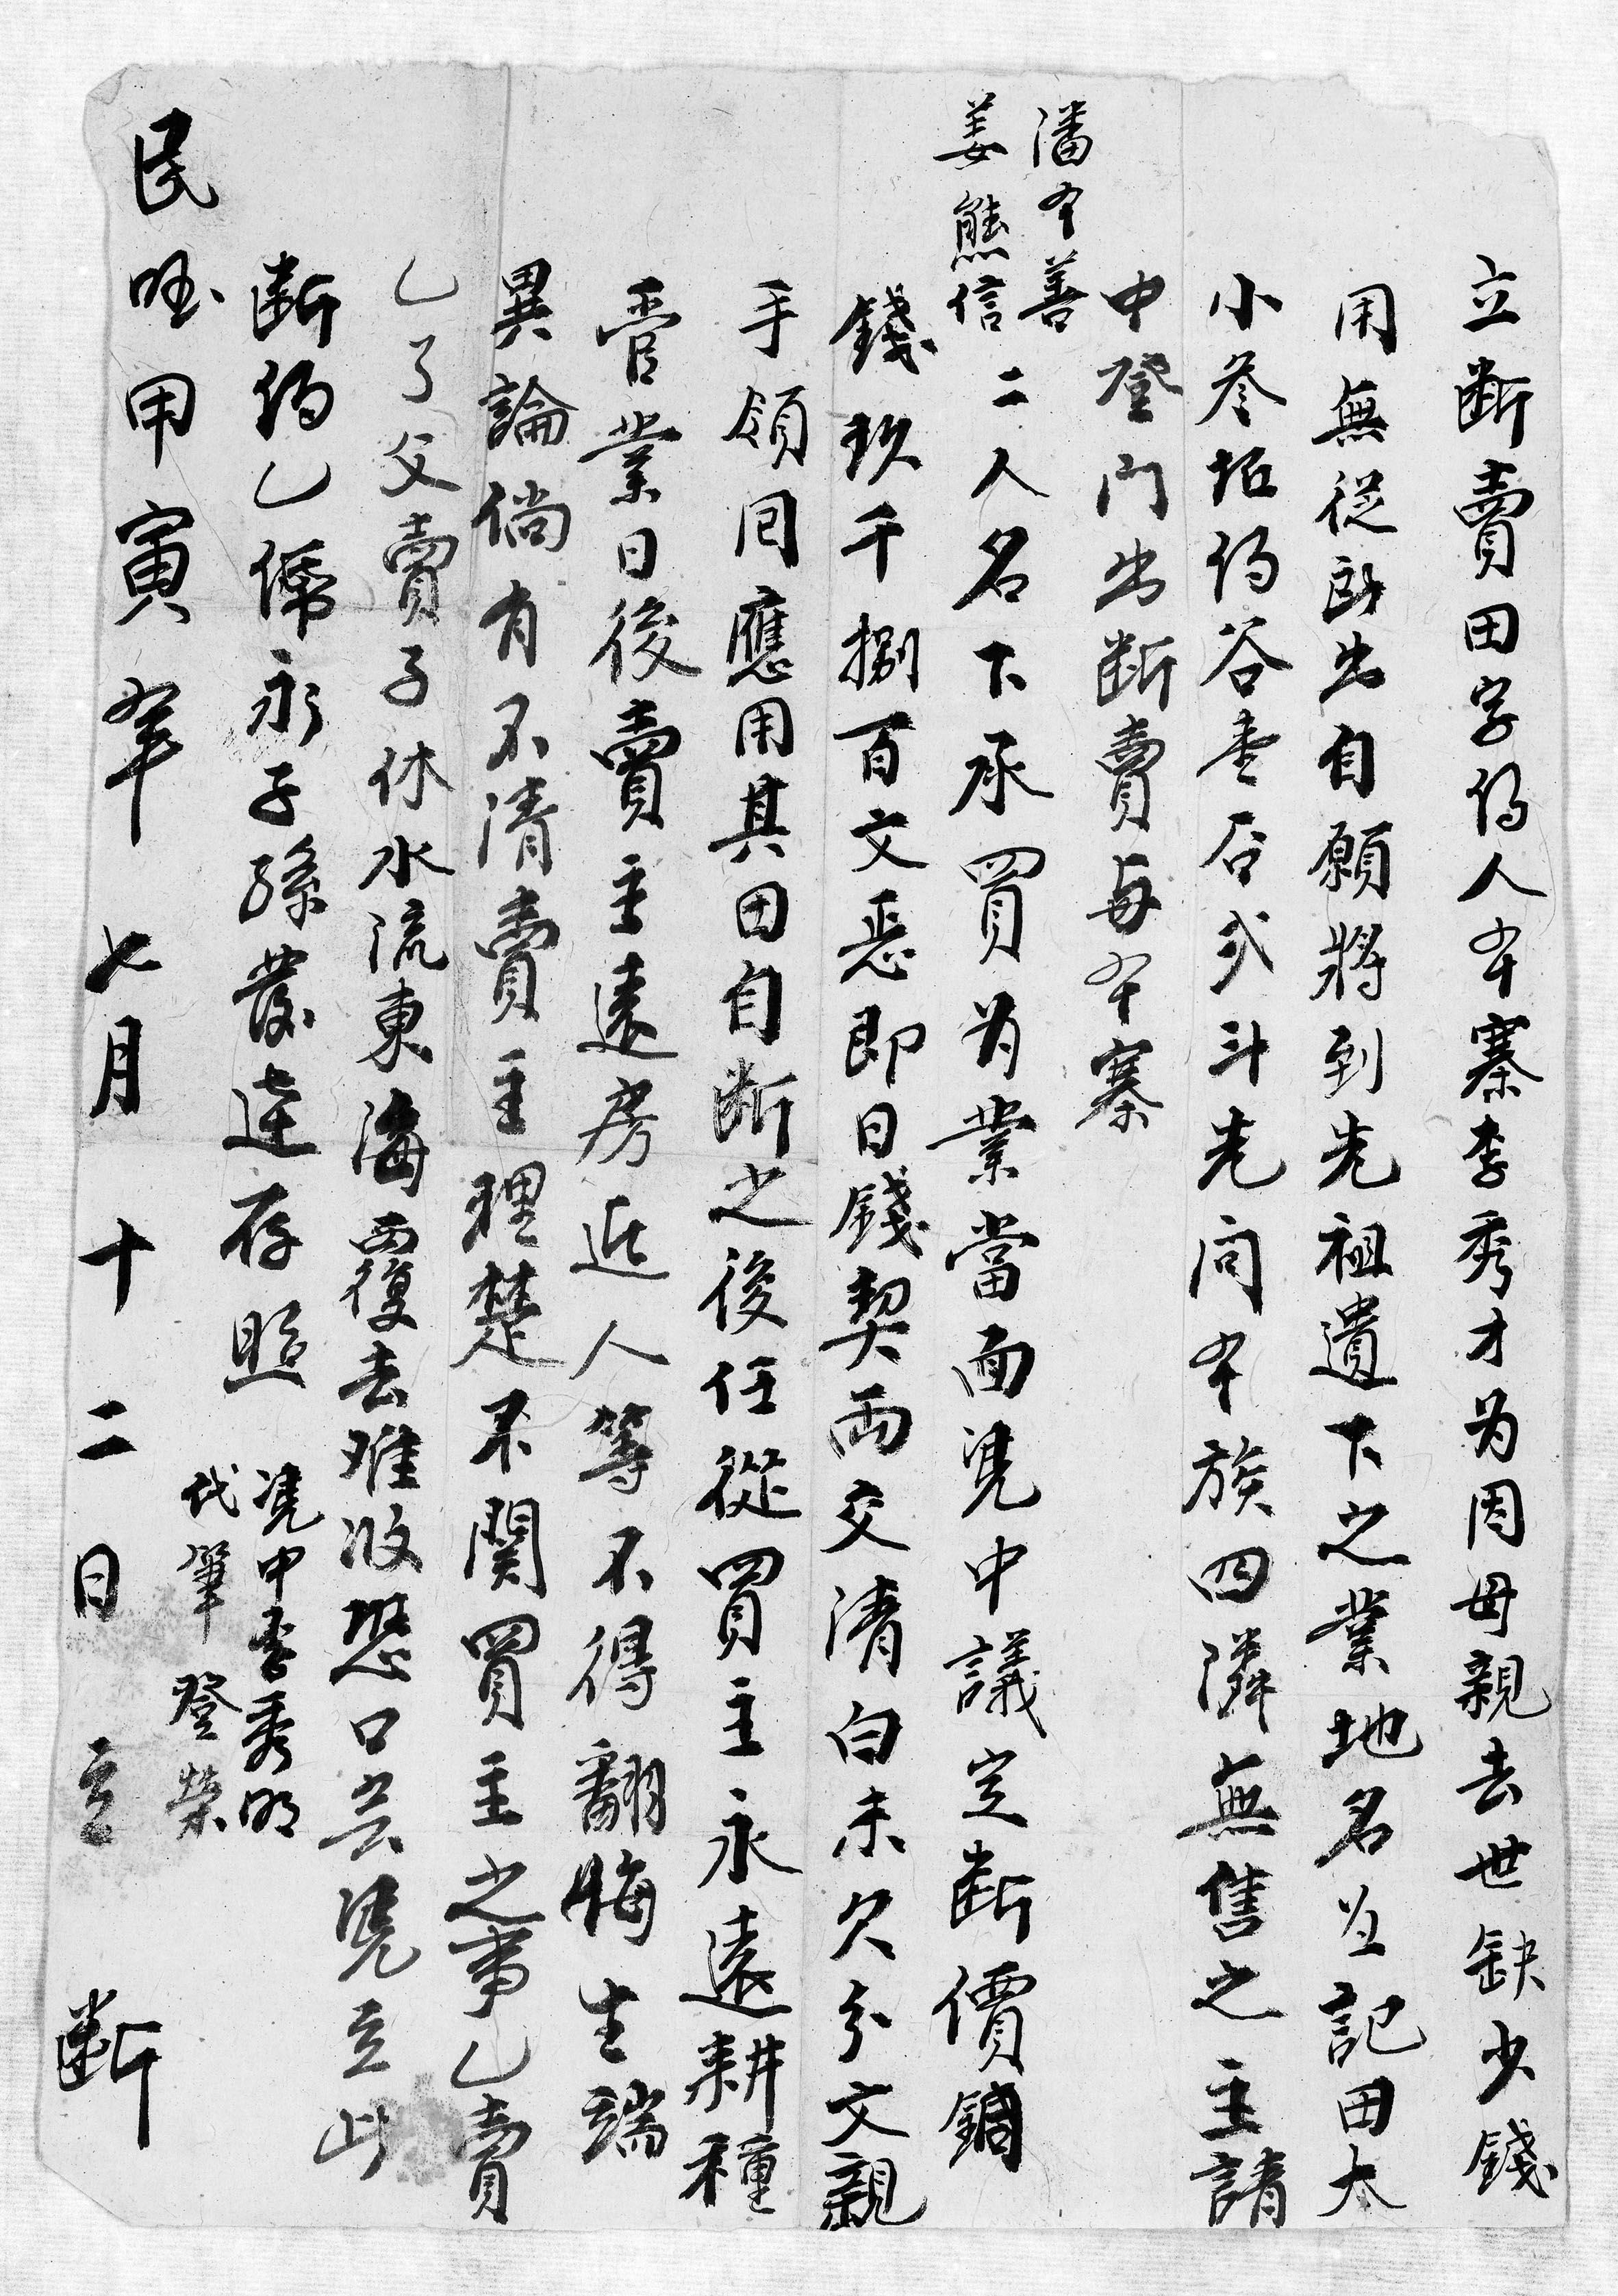 立断賣田字約人本寨李秀才为因母親去世缺少錢
用無從所出自願將到先祖遺下之業地名立記田大
小叁坵約谷壹石弍斗先问本族四隣無售之主請
中登門出断賣每本寨
潘本善
姜熊信
二人名下承買为業當面凭中議定断價銅
錢玖千捌百文悉即日錢契両交清白未欠分文親
手領囬應用其田自断之後任從買主永遠耕種
管業日後賣主遠房近人等不得翻悔生端
異論倘有不清賣主理楚不関買主之事乙賣
乙了父賣子休水流東海覆去难收恐口无凭立此
断約乙㡧永子孫發達存照
凴中李秀明
代筆 登榮
民国甲寅年七月十二日立 断